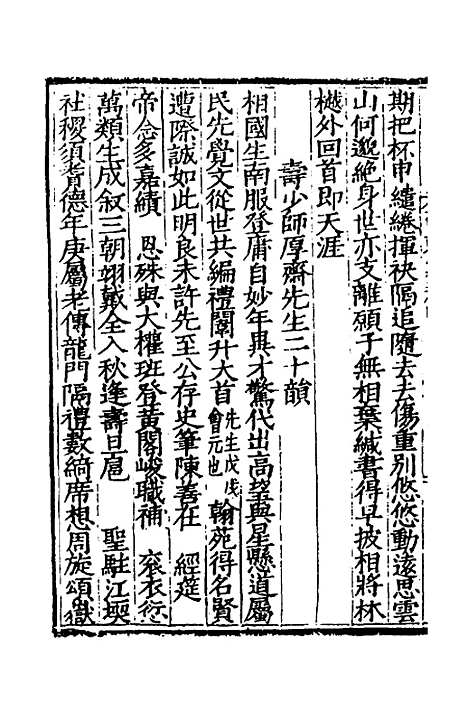 期把杯申繾綣揮袂隔追隨去去傷重別悠悠動遠思雲
山何邈絕身世亦支離願子無相棄緘書得早披相將林
樾外回首即天涯
壽少師厚齋先生二十韻
相國生南服登庸自妙年異才驚代出高望與星懸道屬
民先覺文從世共編禮闈升大首先生戊戌會元也翰苑得名賢
遭際誠如此明良未許先至公存史筆陳善在 經筵
帝念多嘉績 恩殊與大權班登黃閣峻職補 袞衣愆
萬類生成叙三朝翊戴全入秋逢壽旦扈 聖駐江堧
社稷須耆德年庚屬老傳龍門隔禮數綺席想周旋頌嶽